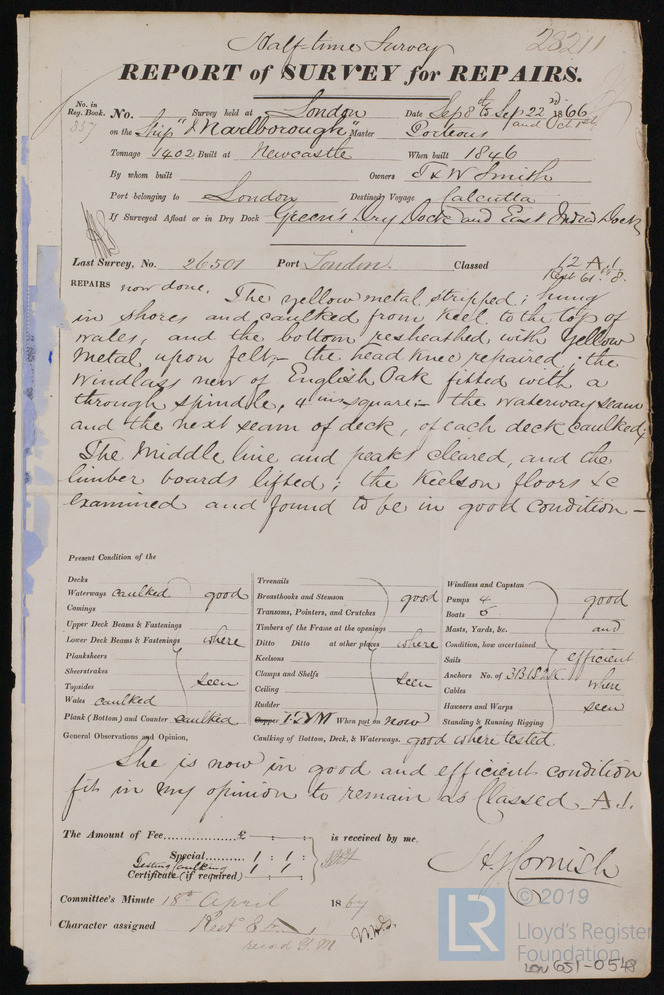 Half-time Survey
28211
REPORT of SURVEY for REPAIRS.
No. in Reg. Book.
337
No. Survey held at London Date Sep 8th to Sep 22nd 1866
and Oct 1st
on the Ship "Marlborough" Master Porteous
Tonnage 1402 Built at Newcastle When built 1846
By whom built Owners T & W Smith
Port belonging to London Destined Voyage Calcutta
If Surveyed Afloat or in Dry Dock Green's Dry Dock and East India Dock
Last Survey, No. 26501 Port London. Classed 12 A.1.
REPAIRS now done. The yellow metal stripped; hung
in shores and caulked from Keel to the top of
wales, and the bottom resheathed with yellow
metal upon felt;- the head knee repaired; the
windlass new of English Oak fitted with a
through spindle, 4 ins square:- the waterway seam
and the next seam of deck, of each deck caulked;
The middle line and peaks cleared, and the
limber boards lifted; the Keelson floors &c
examined and found to be in good condition -
Present Condition of the
Decks
Waterways caulked good
Comings
Upper Deck Beams & Fastenings
Lower Deck Beams & Fastenings where
Planksheers
Sheerstrakes
Topsides seen
Wales caulked
Plank (Bottom) and Counter caulked
Treenails
Breasthooks and Stemson good
Transoms, Pointers, and Crutches
Timbers of the Frame at the openings
Ditto Ditto at other places where
Keelsons
Clamps and Shelfs seen
Ceiling
Rudder
Copper F&YM When put on now
Windlass and Capstan
Pumps 4 good
Boats 5
Masts, Yards, &c. and
Condition, how ascertained
Sails efficient
Anchors No. of 3B1S2K
Cables where
Hawsers and Warps seen
Standing & Running Rigging
General Observations and Opinion, Caulking of Bottom, Deck, & Waterways. good where tested.
She is now in good and efficient condition
fit in my opinion to remain as Classed A.1.
The Amount of Fee £ is received by me,
Special 1 : 1 :
Testing Caulking 1 : 1 :
Certificate (if required)
H J Cornish
Committee's Minute 18th April 1867
Character assigned
© 2019
LR
Lloyd's Register
Foundation
LON 651-0548